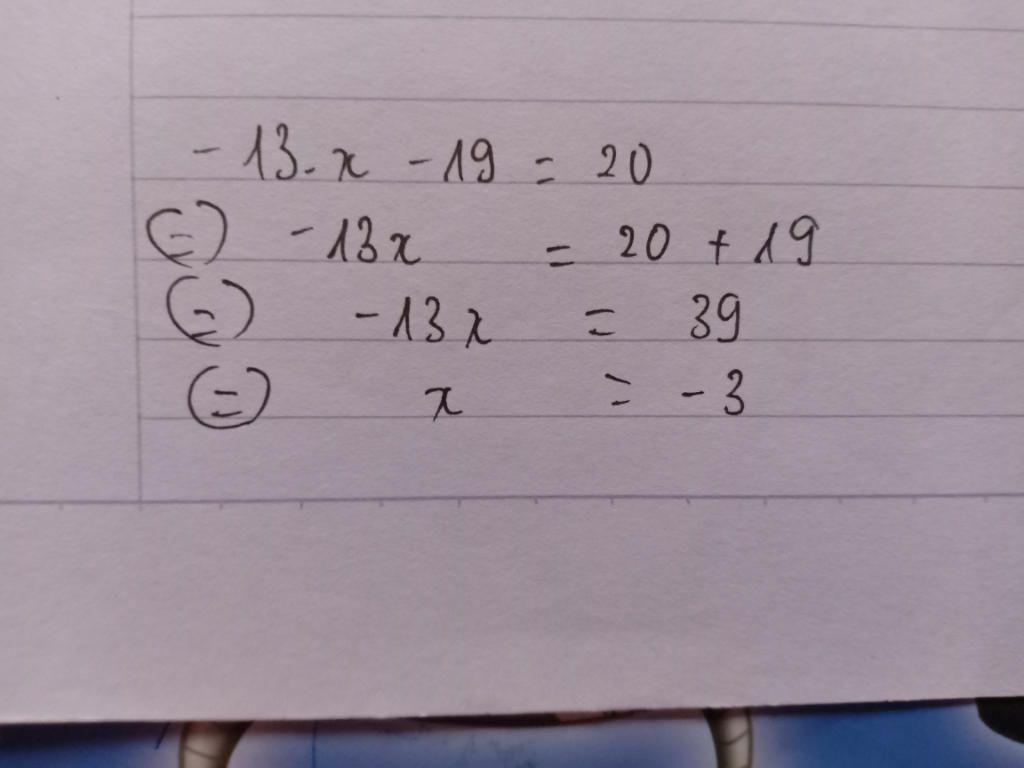 - 13.x - 19 = 20
(=) - 13x = 20 + 19
(=) - 13x = 39
(=) x = - 3